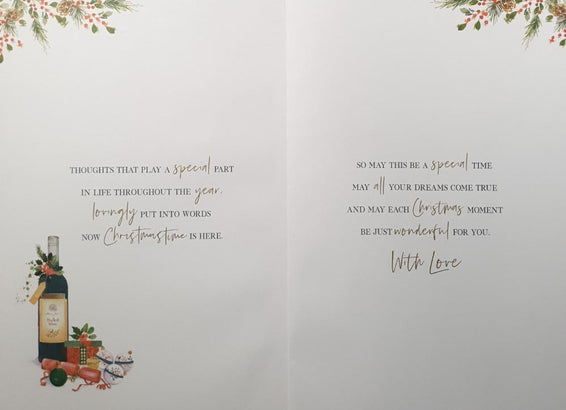 THOUGHTS THAT PLAY A special PART
IN LIFE THROUGHOUT THE year,
lovingly PUT INTO WORDS
NOW Christmastime IS HERE.
SO MAY THIS BE A special TIME
MAY all YOUR DREAMS COME TRUE
AND MAY EACH Christmas MOMENT
BE JUST wonderful FOR YOU.
With Love